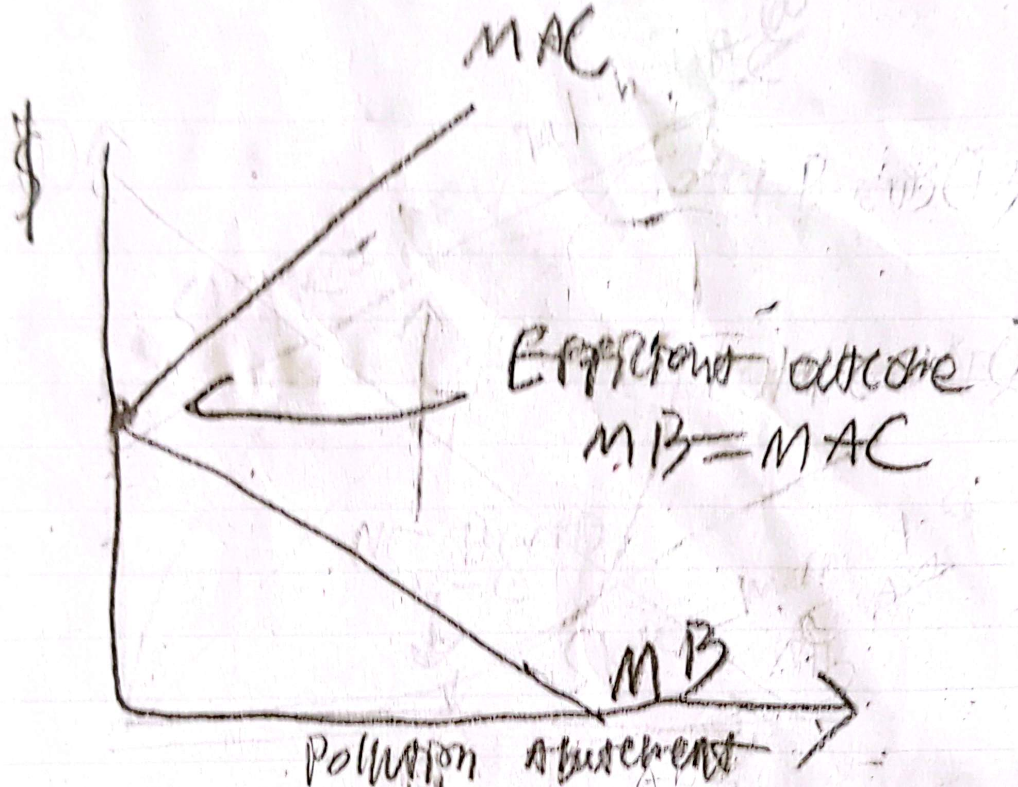 MAC
$
Efficient outcome
MB=MAC
MB
Pollution abatement